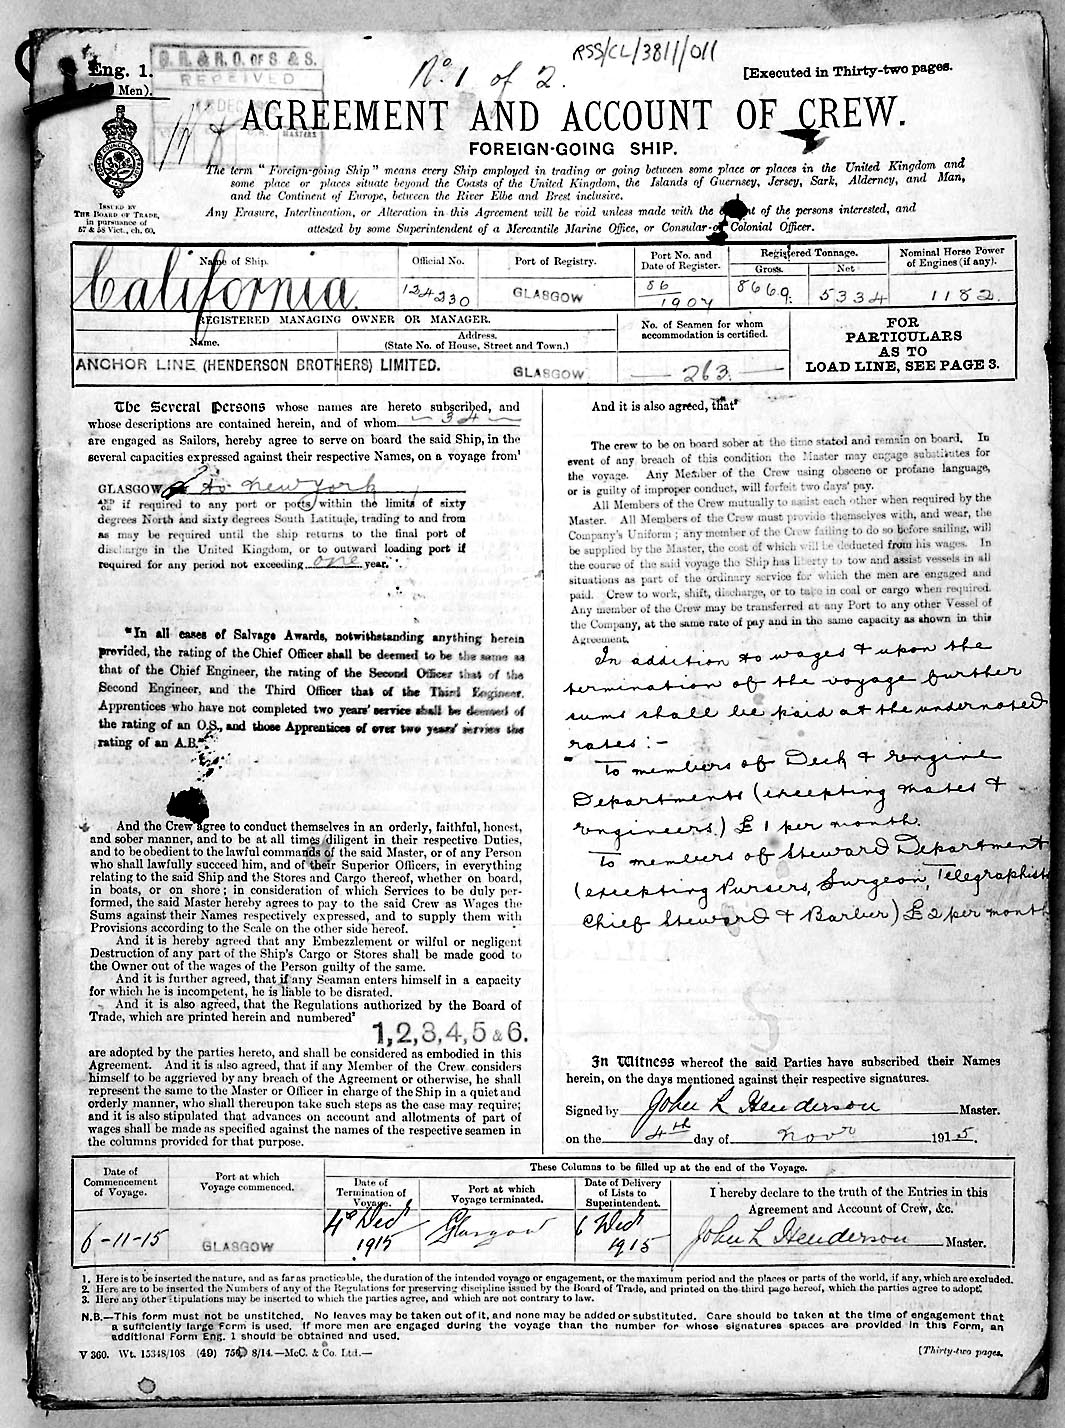 RSS/CL/3811/011
Eng. 1.
Men).
G. R. & R. O. OF S. & S.
RECEIVED
No. 1 of 2.
[Executed in Thirty-two pages.
AGREEMENT AND ACCOUNT OF CREW.
FOREIGN-GOING SHIP.
The term "Foreign-going Ship" means every Ship employed in trading or going between some place or places in the United Kingdom and
some place or places situate beyond the Coasts of the United Kingdom, the Islands of Guernsey, Jersey, Sark, Alderney, and Man,
and the Continent of Europe, between the River Elbe and Brest inclusive.
Any Erasure, Interlineation, or Alteration in this Agreement will be void unless made with the of the persons interested, and
attested by some Superintendent of a Mercantile Marine Office, or Consular or Colonial Officer.
ISSUED BY
THE BOARD OF TRADE,
in pursuance of
57 & 58 Vict., ch. 60.
Name of Ship.
Official No.
Port of Registry.
Port No. and
Date of Register.
Registered Tonnage.
Gross.
Net
Nominal Horse Power
of Engines (if any).
California.
124230
GLASGOW
86
1907
8669.
5334
1182.
REGISTERED MANAGING OWNER OR MANAGER.
Name.
Address.
(State No. of House, Street and Town.)
No. of Seamen for whom
accommodation is certified.
FOR
PARTICULARS
AS TO
LOAD LINE, SEE PAGE 3.
ANCHOR LINE (HENDERSON BROTHERS) LIMITED.
GLASGOW
263.
The Several Persons whose names are hereto subscribed, and
whose descriptions are contained herein, and of whom 34
are engaged as Sailors, hereby agree to serve on board the said Ship, in the
several capacities expressed against their respective Names, on a voyage from¹
GLASGOW to New York
AND/OR if required to any port or ports within the limits of sixty
degrees North and sixty degrees South Latitude, trading to and from
as may be required until the ship returns to the final port of
discharge in the United Kingdom, or to outward loading port if
required for any period not exceeding one year.
"In all cases of Salvage Awards, notwithstanding anything herein
provided, the rating of the Chief Officer shall be deemed to be the same as
that of the Chief Engineer, the rating of the Second Officer that of the
Second Engineer, and the Third Officer that of the Third Engineer.
Apprentices who have not completed two years' service shall be deemed of
the rating of an O.S., and those Apprentices of over two years' service the
rating of an A.B."
And the Crew agree to conduct themselves in an orderly, faithful, honest,
and sober manner, and to be at all times diligent in their respective Duties,
and to be obedient to the lawful commands of the said Master, or of any Person
who shall lawfully succeed him, and of their Superior Officers, in everything
relating to the said Ship and the Stores and Cargo thereof, whether on board,
in boats, or on shore; in consideration of which Services to be duly per-
formed, the said Master hereby agrees to pay to the said Crew as Wages the
Sums against their Names respectively expressed, and to supply them with
Provisions according to the Scale on the other side hereof.
And it is hereby agreed that any Embezzlement or wilful or negligent
Destruction of any part of the Ship's Cargo or Stores shall be made good to
the Owner out of the wages of the Person guilty of the same.
And it is further agreed, that if any Seaman enters himself in a capacity
for which he is incompetent, he is liable to be disrated.
And it is also agreed, that the Regulations authorized by the Board of
Trade, which are printed herein and numbered²
1,2,3,4,5 & 6.
are adopted by the parties hereto, and shall be considered as embodied in this
Agreement. And it is also agreed, that if any Member of the Crew considers
himself to be aggrieved by any breach of the Agreement or otherwise, he shall
represent the same to the Master or Officer in charge of the Ship in a quiet and
orderly manner, who shall thereupon take such steps as the case may require;
and it is also stipulated that advances on account and allotments of part of
wages shall be made as specified against the names of the respective seamen in
the columns provided for that purpose.
And it is also agreed, that³
The crew to be on board sober at the time stated and remain on board. In
event of any breach of this condition the Master may engage substitutes for
the voyage. Any Member of the Crew using obscene or profane language,
or is guilty of improper conduct, will forfeit two days' pay.
All Members of the Crew mutually to assist each other when required by the
Master. All Members of the Crew must provide themselves with, and wear, the
Company's Uniform; any member of the Crew failing to do so before sailing, will
be supplied by the Master, the cost of which will be deducted from his wages. In
the course of the said voyage the Ship has liberty to tow and assist vessels in all
situations as part of the ordinary service for which the men are engaged and
paid. Crew to work, shift, discharge, or to take in coal or cargo when required.
Any member of the Crew may be transferred at any Port to any other Vessel of
the Company, at the same rate of pay and in the same capacity as shown in this
Agreement.
In addition to wages & upon the
termination of the voyage further
sums shall be paid at the undernoted
rates:-
To members of Deck & Engine
Departments (excepting Mates &
Engineers.) £1 per month.
To members of Steward Department
(excepting Pursers, Surgeon, Telegraphists
Chief Steward & Barber) £2 per month
In Witness whereof the said Parties have subscribed their Names
herein, on the days mentioned against their respective signatures.
Signed by John L Henderson Master.
on the 4th day of Novr 1915.
Date of
Commencement
of Voyage.
Port at which
Voyage commenced.
These Columns to be filled up at the end of the Voyage.
Date of
Termination of
Voyage.
Port at which
Voyage terminated.
Date of Delivery
of Lists to
Superintendent.
I hereby declare to the truth of the Entries in this
Agreement and Account of Crew, &c.
6-11-15
GLASGOW
4th Decr
1915
Glasgow
6 Decr
1915
John L Henderson Master.
1. Here is to be inserted the nature, and as far as practicable, the duration of the intended voyage or engagement, or the maximum period and the places or parts of the world, if any, which are excluded.
2. Here are to be inserted the Numbers of any of the Regulations for preserving discipline issued by the Board of Trade, and printed on the third page hereof, which the parties agree to adopt.
3. Here any other stipulations may be inserted to which the parties agree, and which are not contrary to law.
N.B.—This form must not be unstitched. No leaves may be taken out of it, and none may be added or substituted. Care should be taken at the time of engagement that
a sufficiently large Form is used. If more men are engaged during the voyage than the number for whose signatures spaces are provided in this Form, an
additional Form Eng. 1 should be obtained and used.
V 360. Wt. 15348/108 (49) 750 8/14.—McC. & Co. Ltd.—
[Thirty-two pages.